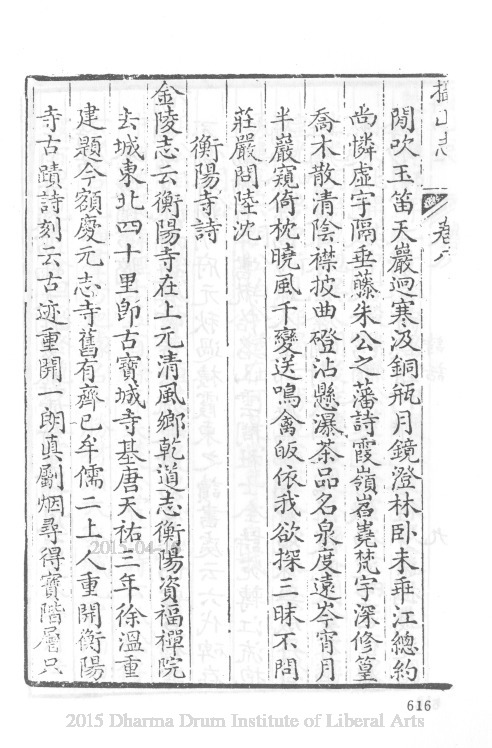 攝山志
卷六
閒吹玉笛天巖迥寒汲銅瓶月鏡澄林卧未乖江總約
尚憐虛宇隔垂藤朱公之藩詩霞嶺岧嶤梵宇深修篁
喬木散清陰襟披曲磴沾懸瀑茶品名泉度遠岑宵月
半巖窺倚枕曉風千變送鳴禽皈依我欲探三昧不問
莊嚴問陸沈
衡陽寺詩
金陵志云衡陽寺在上元清風鄉乾道志衡陽資福禪院
去城東北四十里卽古寶城寺基唐天祐三年徐溫重
建題今額慶元志寺舊有齊已牟儒二上人重開衡陽
寺古蹟詩刻云古迹重開一朗眞劚烟尋得寶階層只
616
2015 Dharma Drum Institute of Liberal Arts